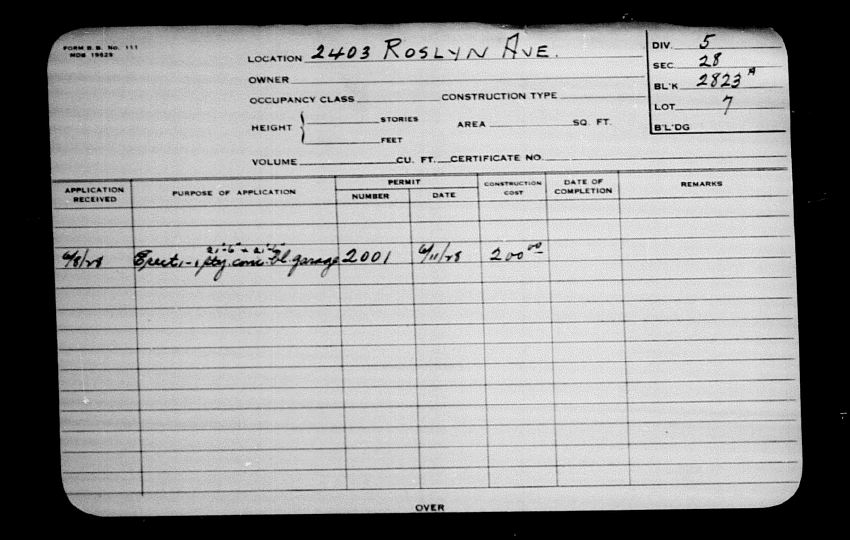 FORM B. B. No. 111
MDB 19629
LOCATION 2403 ROSLYN AVE.
OWNER
OCCUPANCY CLASS CONSTRUCTION TYPE
HEIGHT { STORIES
FEET
AREA SQ. FT.
VOLUME CU. FT. CERTIFICATE NO.
DIV. 5
SEC. 28
BL'K 2823 A
LOT 7
B'L'DG
APPLICATION RECEIVED PURPOSE OF APPLICATION PERMIT NUMBER DATE CONSTRUCTION COST DATE OF COMPLETION REMARKS
21'-6" x 21'-6"
6/8/28 Erect 1-1 sty. conc. bl. garage 2001 6/11/28 200 00
OVER